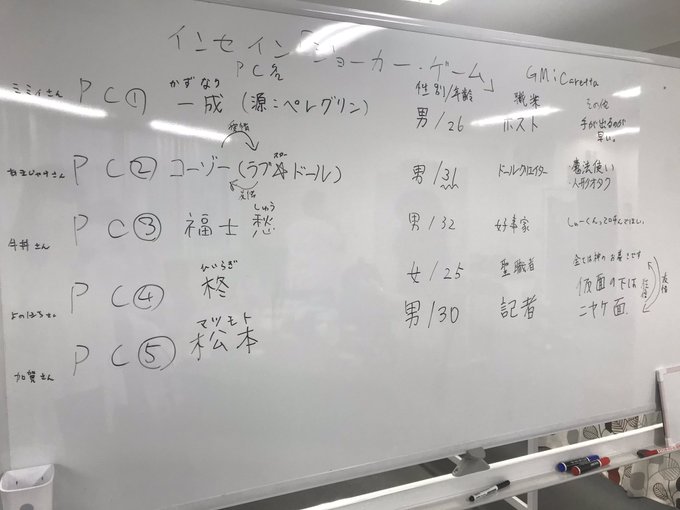 インセイン「ジョーカー・ゲーム」 GM:Caretta
PC名 性別/年齢 職業 その他
ミミィさん PC① かずなり 一成 (源:ペレグリン) 男/26 ホスト 手が出るのが早い。
PC② コーゾー(ラブ☆ドール) 男/31 ドールクリエイター 魔法使い 人形オタク
スター
今井さん PC③ 福士 愁 しゅう 男/32 好事家 しゅーくんって呼んでほしい。
PC④ ひいらぎ 柊 女/25 聖職者 全ては神のお導きです
加賀さん PC⑤ マツモト 松本 男/30 記者 仮面の下は ニヤケ面。